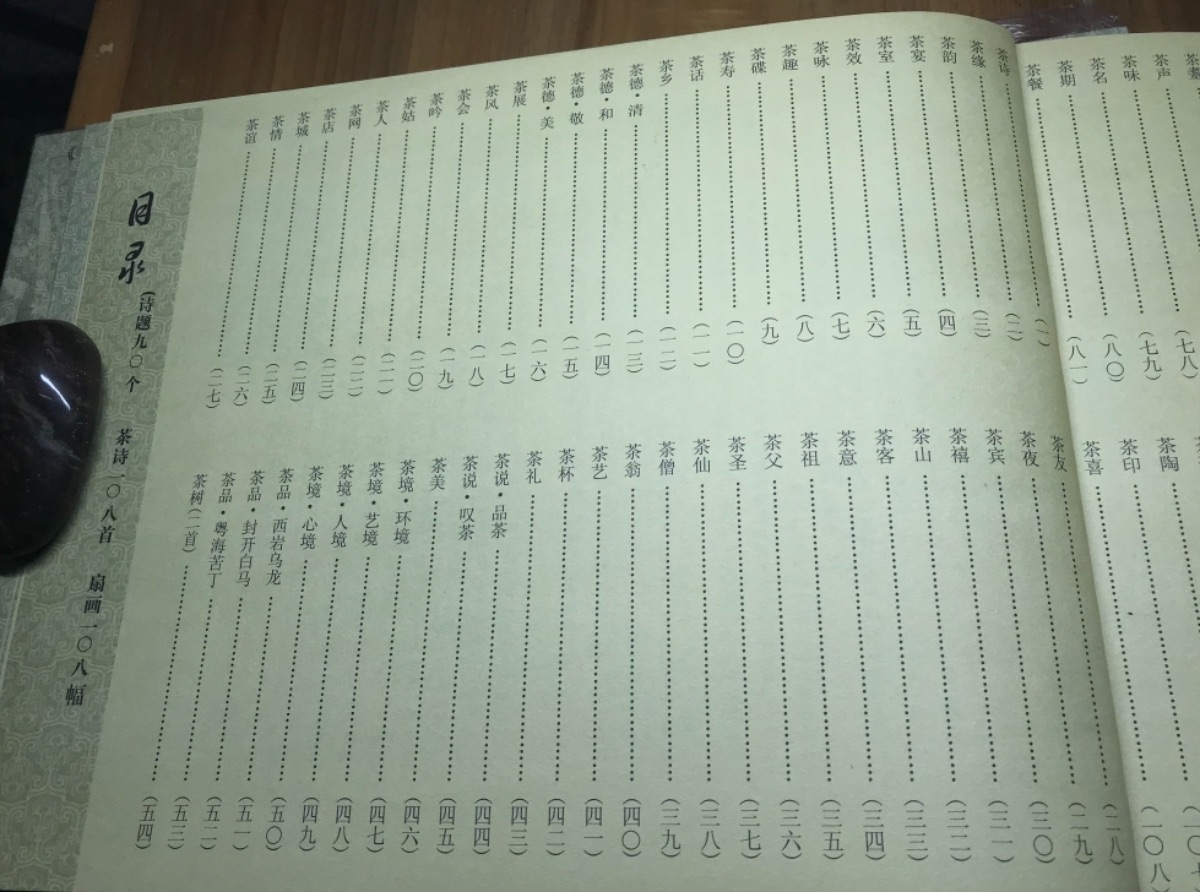 茶声
茶味……(七八)
茶名……(七九)
茶期……(八〇)
茶餐……(八一)
茶陶
茶印……(一〇
茶喜……(一〇八
茶诗……(一)
茶缘……(二)
茶韵……(三)
茶宴……(四)
茶室……(五)
茶效……(六)
茶咏……(七)
茶趣……(八)
茶碟……(九)
茶寿……(一〇)
茶话……(一一)
茶乡……(一二)
茶德·清……(一三)
茶德·和……(一四)
茶德·敬……(一五)
茶德·美……(一六)
茶展……(一七)
茶风……(一八)
茶会……(一九)
茶吟……(二〇)
茶姑……(二一)
茶人……(二二)
茶网……(二三)
茶店……(二四)
茶城……(二五)
茶情……(二六)
茶谊……(二七)
茶友……(二八)
茶夜……(二九)
茶宾……(三〇)
茶禧……(三一)
茶山……(三二)
茶客……(三三)
茶意……(三四)
茶祖……(三五)
茶父……(三六)
茶圣……(三七)
茶仙……(三八)
茶僧……(三九)
茶翁……(四〇)
茶艺……(四一)
茶杯……(四二)
茶礼……(四三)
茶说·品茶……(四四)
茶说·叹茶……(四五)
茶美……(四六)
茶境·环境……(四七)
茶境·艺境……(四八)
茶境·人境……(四九)
茶境·心境……(五〇)
茶品·西岩乌龙……(五一)
茶品·封开白马……(五二)
茶品·粤海苦丁……(五三)
茶树(二首)……(五四)
目录(诗题九〇个 茶诗一〇八首 扇画一〇八幅